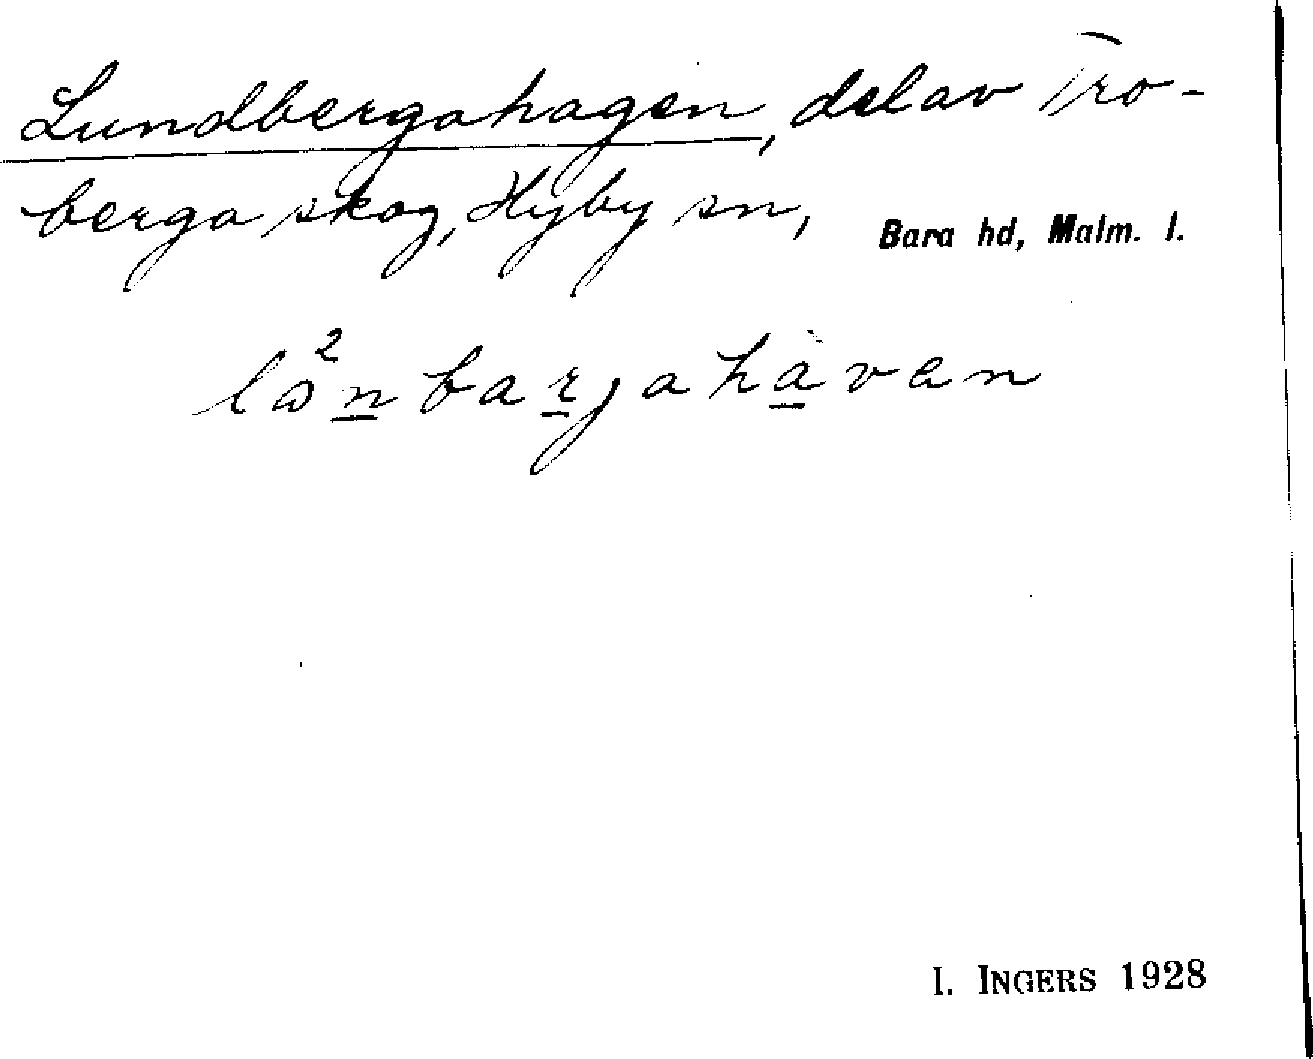 Lundbergahagen, del av Tro-
berga skog, Hyby sn, Bara hd, Malm. l.
I. INGERS 1928